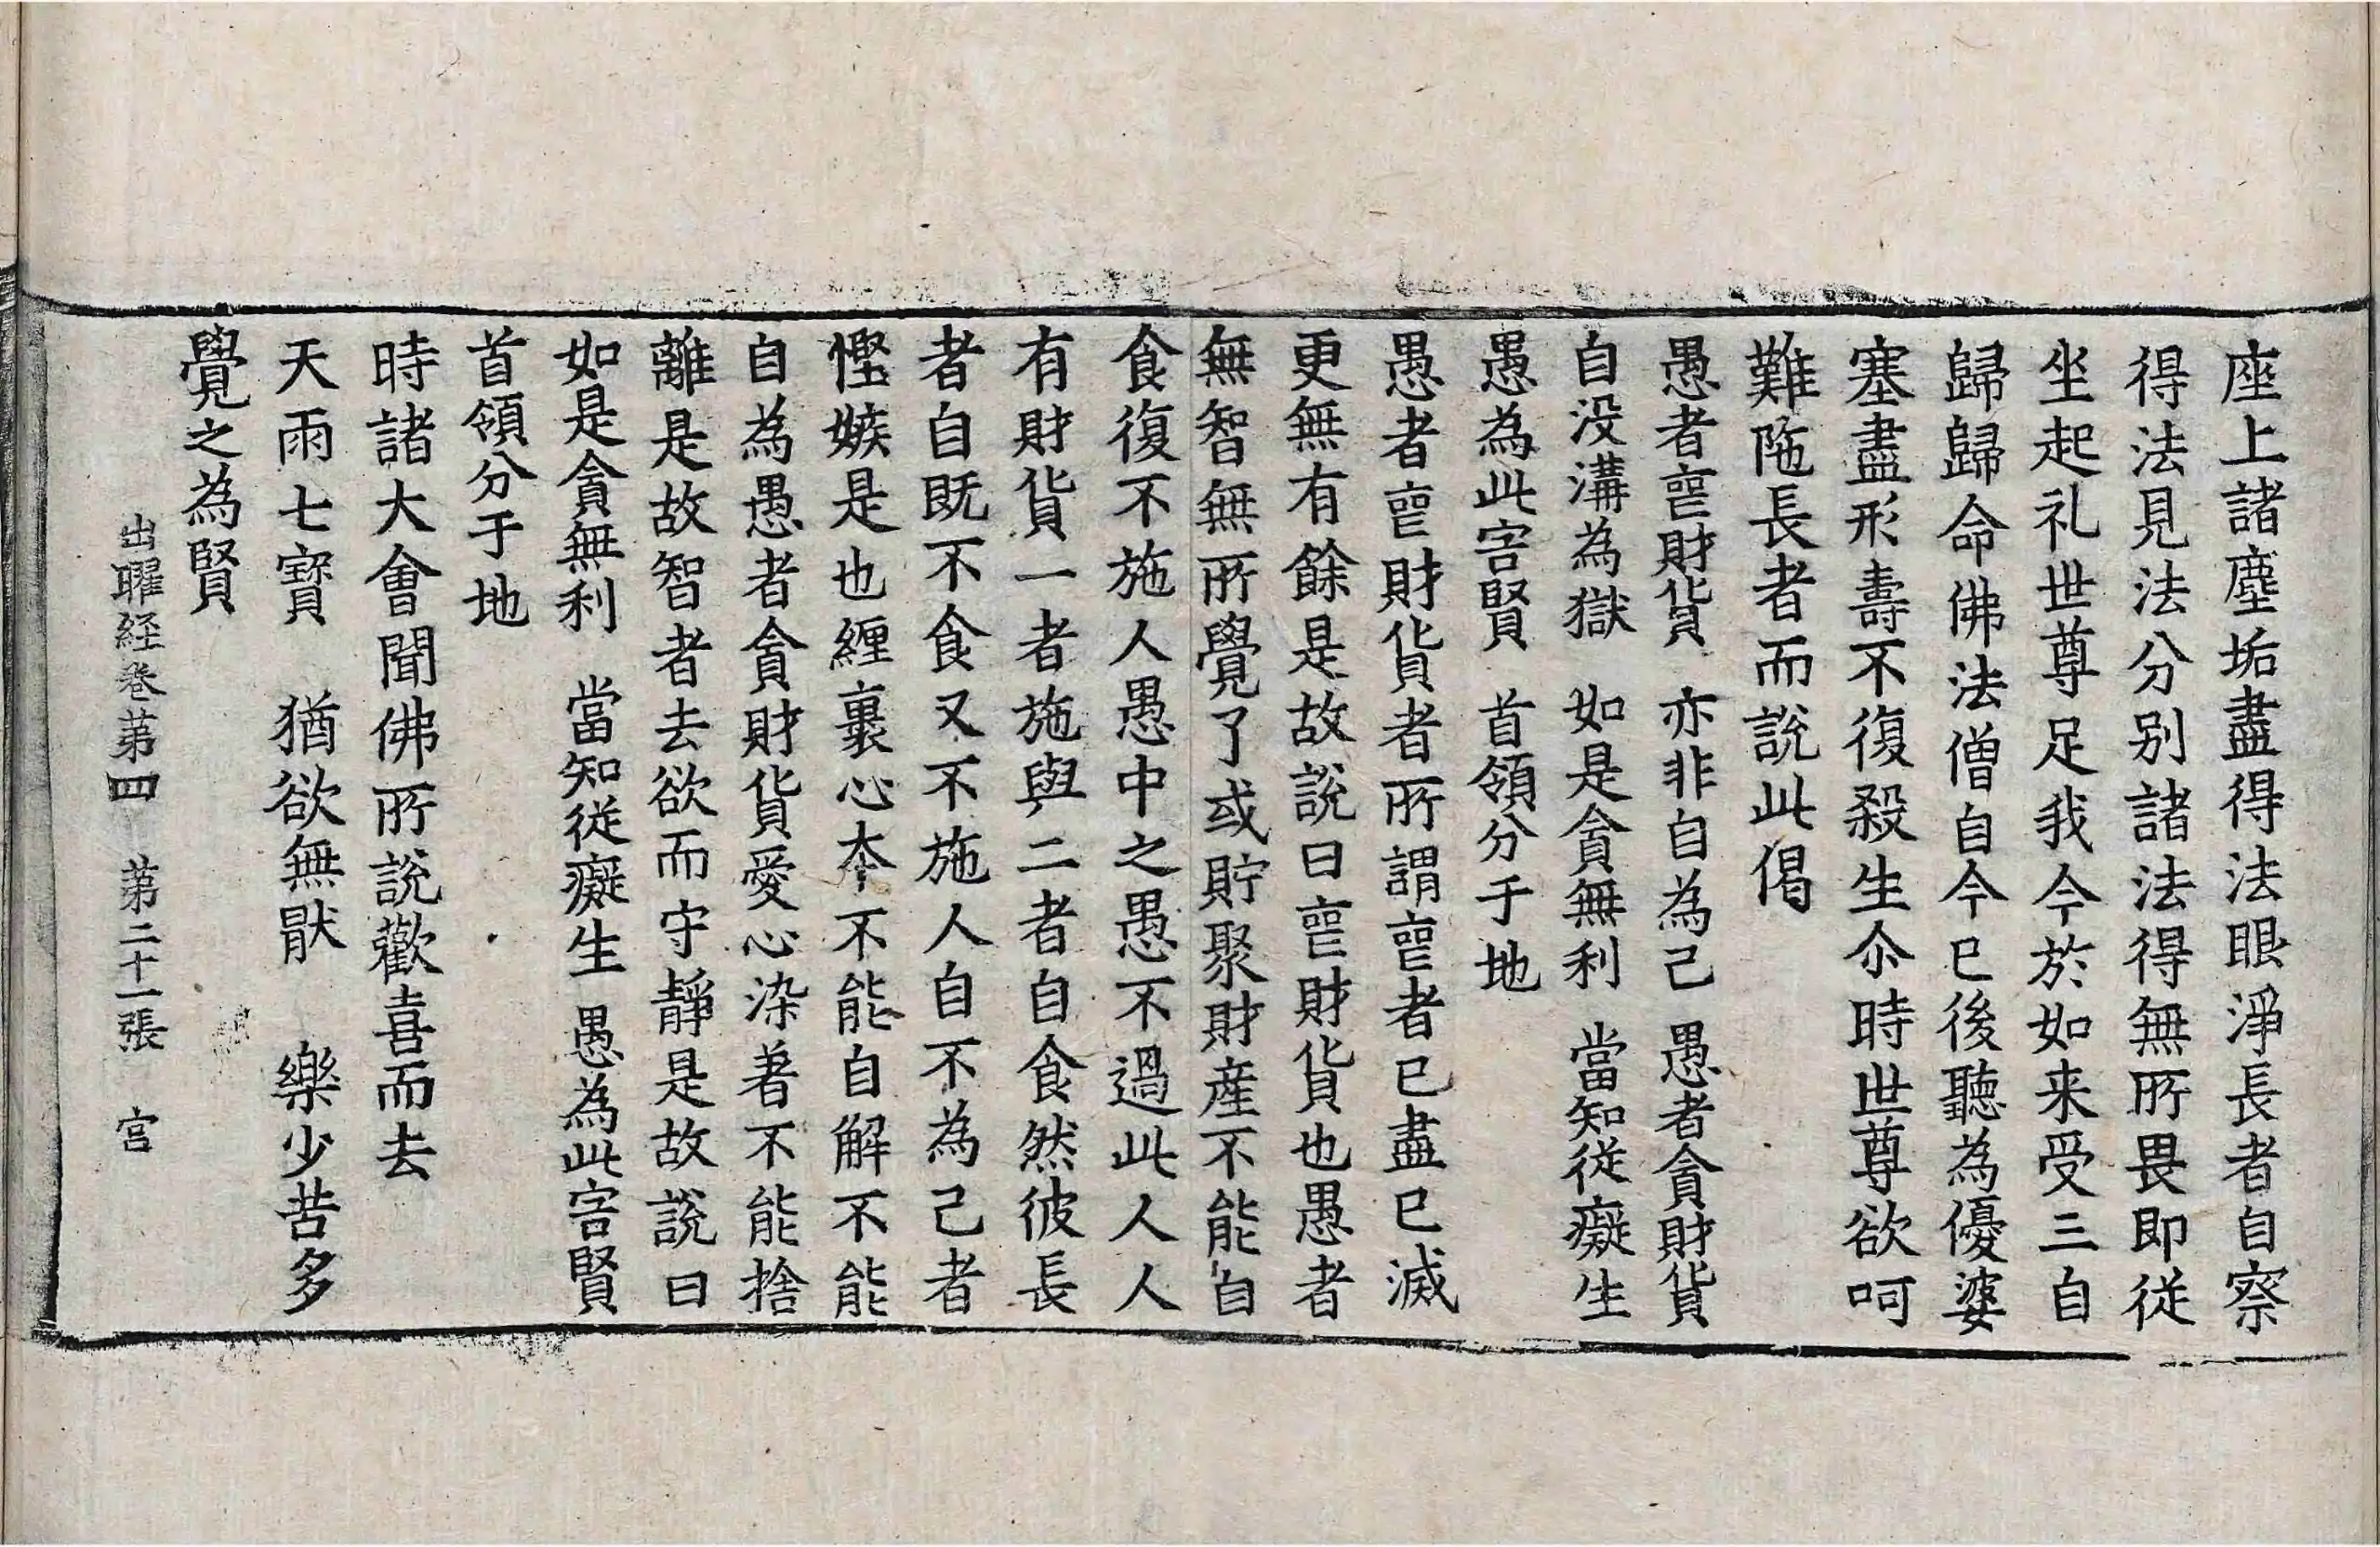 座上諸塵垢盡得法眼淨長者自察
得法見法分别諸法得無所畏即從
坐起礼世尊足我今於如来受三自
歸歸命佛法僧自今已後聽為優婆
塞盡形壽不復殺生尒時世尊欲呵
難陁長者而說此偈
愚者䘮財貨　亦非自為己　愚者貪財貨
自没溝為獄　如是貪無利　當知從癡生
愚為此害賢　首領分于地
愚者䘮財貨者所謂䘮者已盡已滅
更無有餘是故說曰䘮財貨也愚者
無智無所覺了或貯聚財産不能自
食復不施人愚中之愚不過此人人
有財貨一者施與二者自食然彼長
者自既不食又不施人自不為己者
慳嫉是也纒裹心夲不能自解不能
自為愚者貪財貨愛心染著不能捨
離是故智者去欲而守靜是故說曰
如是貪無利　當知從癡生　愚為此害賢
首領分于地
時諸大會聞佛所說歡喜而去
天雨七寳　猶欲無猒　樂少苦多
覺之為賢
出曜経卷第四　第二十一張　宫